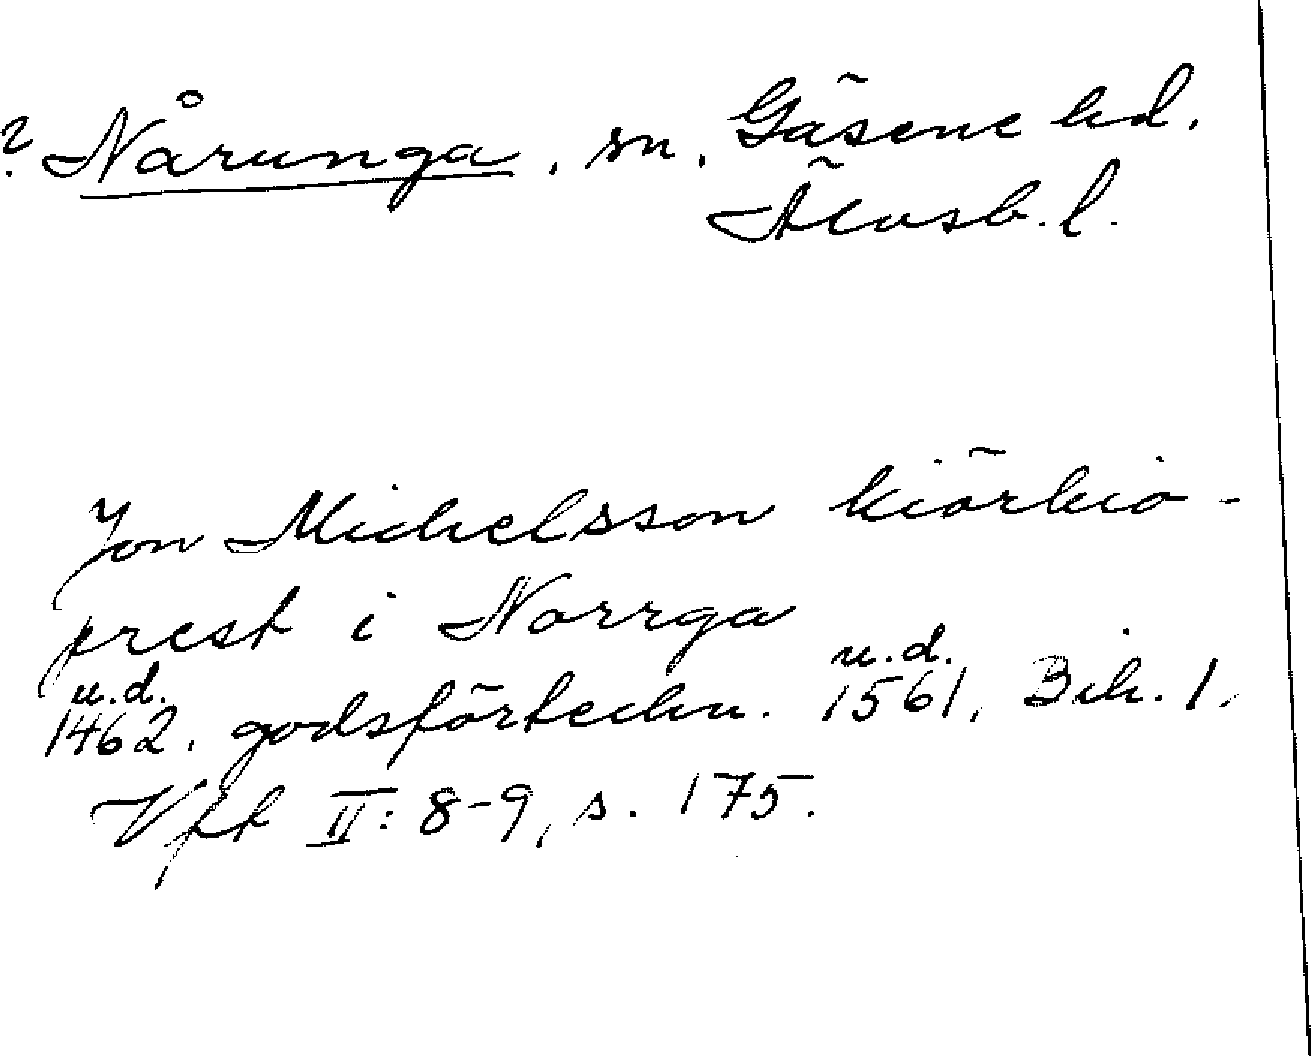 ? Nårunga, sn, Gäsene hd.
Älvsb. l.
Jon Michelsson kiörkio-
prest i Norrga
u.d. u.d.
1462. godsförteckn. 1561, Bih. 1,
Vft II: 8-9, s. 175.